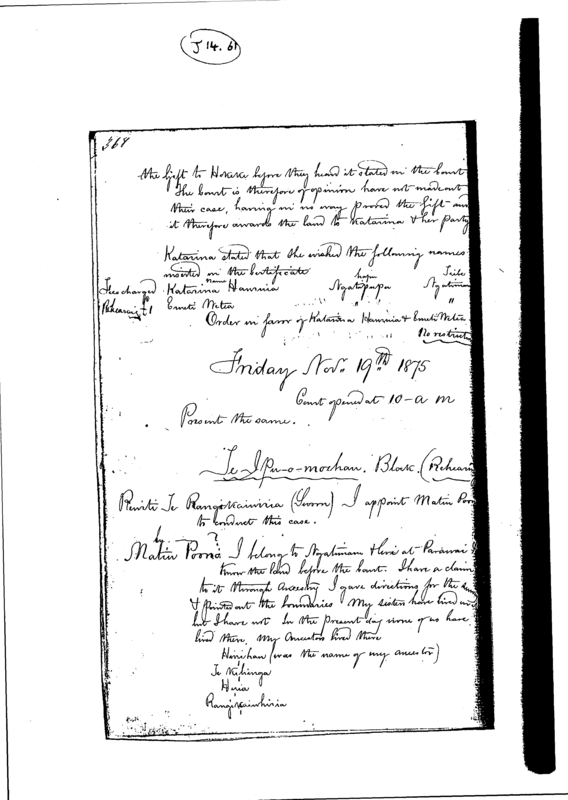 J 14. 61
364
the Gift to Hokeke before they heard it stated in the Court
The Court is therefore of opinion have not made out
their case, having in no way proved the Gift and
it therefore awards the land to Katarina & her Party
Katarina stated that she wished the following names
inserted in the Certificate
Name hapu Tribe
Fees charged Katarina Hauruia Ngatipupu Ngatimaru
Rehearing £1 Emeti Watea " "
Order in favor of Katarina Hauruia & Emeti Watea
No restrict
Friday Nov. 19th 1875
Court opened at 10 - a m
Present the same.
Te Ipu-o-moehau. Block. (Rehearing
Rewiti Te Rangikaiwiria (Sworn) I appoint Matiu Poono
to conduct this case.
by
Matiu Poono ? I belong to Ngatimaru & live at Parawai I
know the land before the Court. I have a claim
to it through Ancestry I gave directions for the
& pointed out the boundaries My sisters have lived
but I have not In the present day none of us have
lived there, my Ancestors lived there
Hinihau (was the name of my ancestor)
Te Kihinga
Huia
Rangikaiwhiria